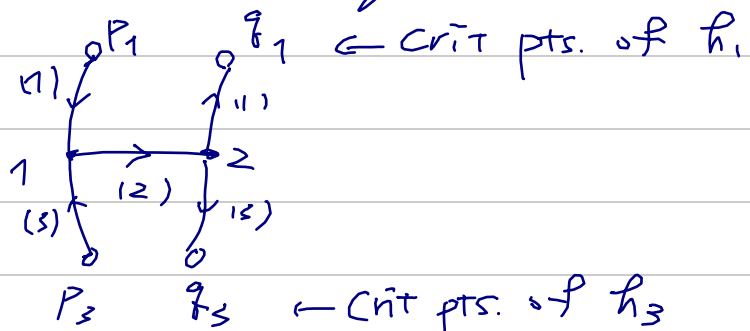 p₁ q₁ ← crit pts. of h₁
(1) (1)
1 (2) 2
(3) (3)
p₃ q₃ ← crit pts. of h₃